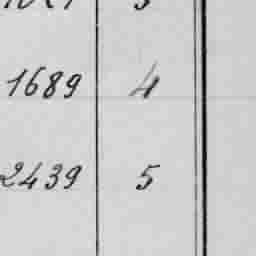 1689 4
2439 5